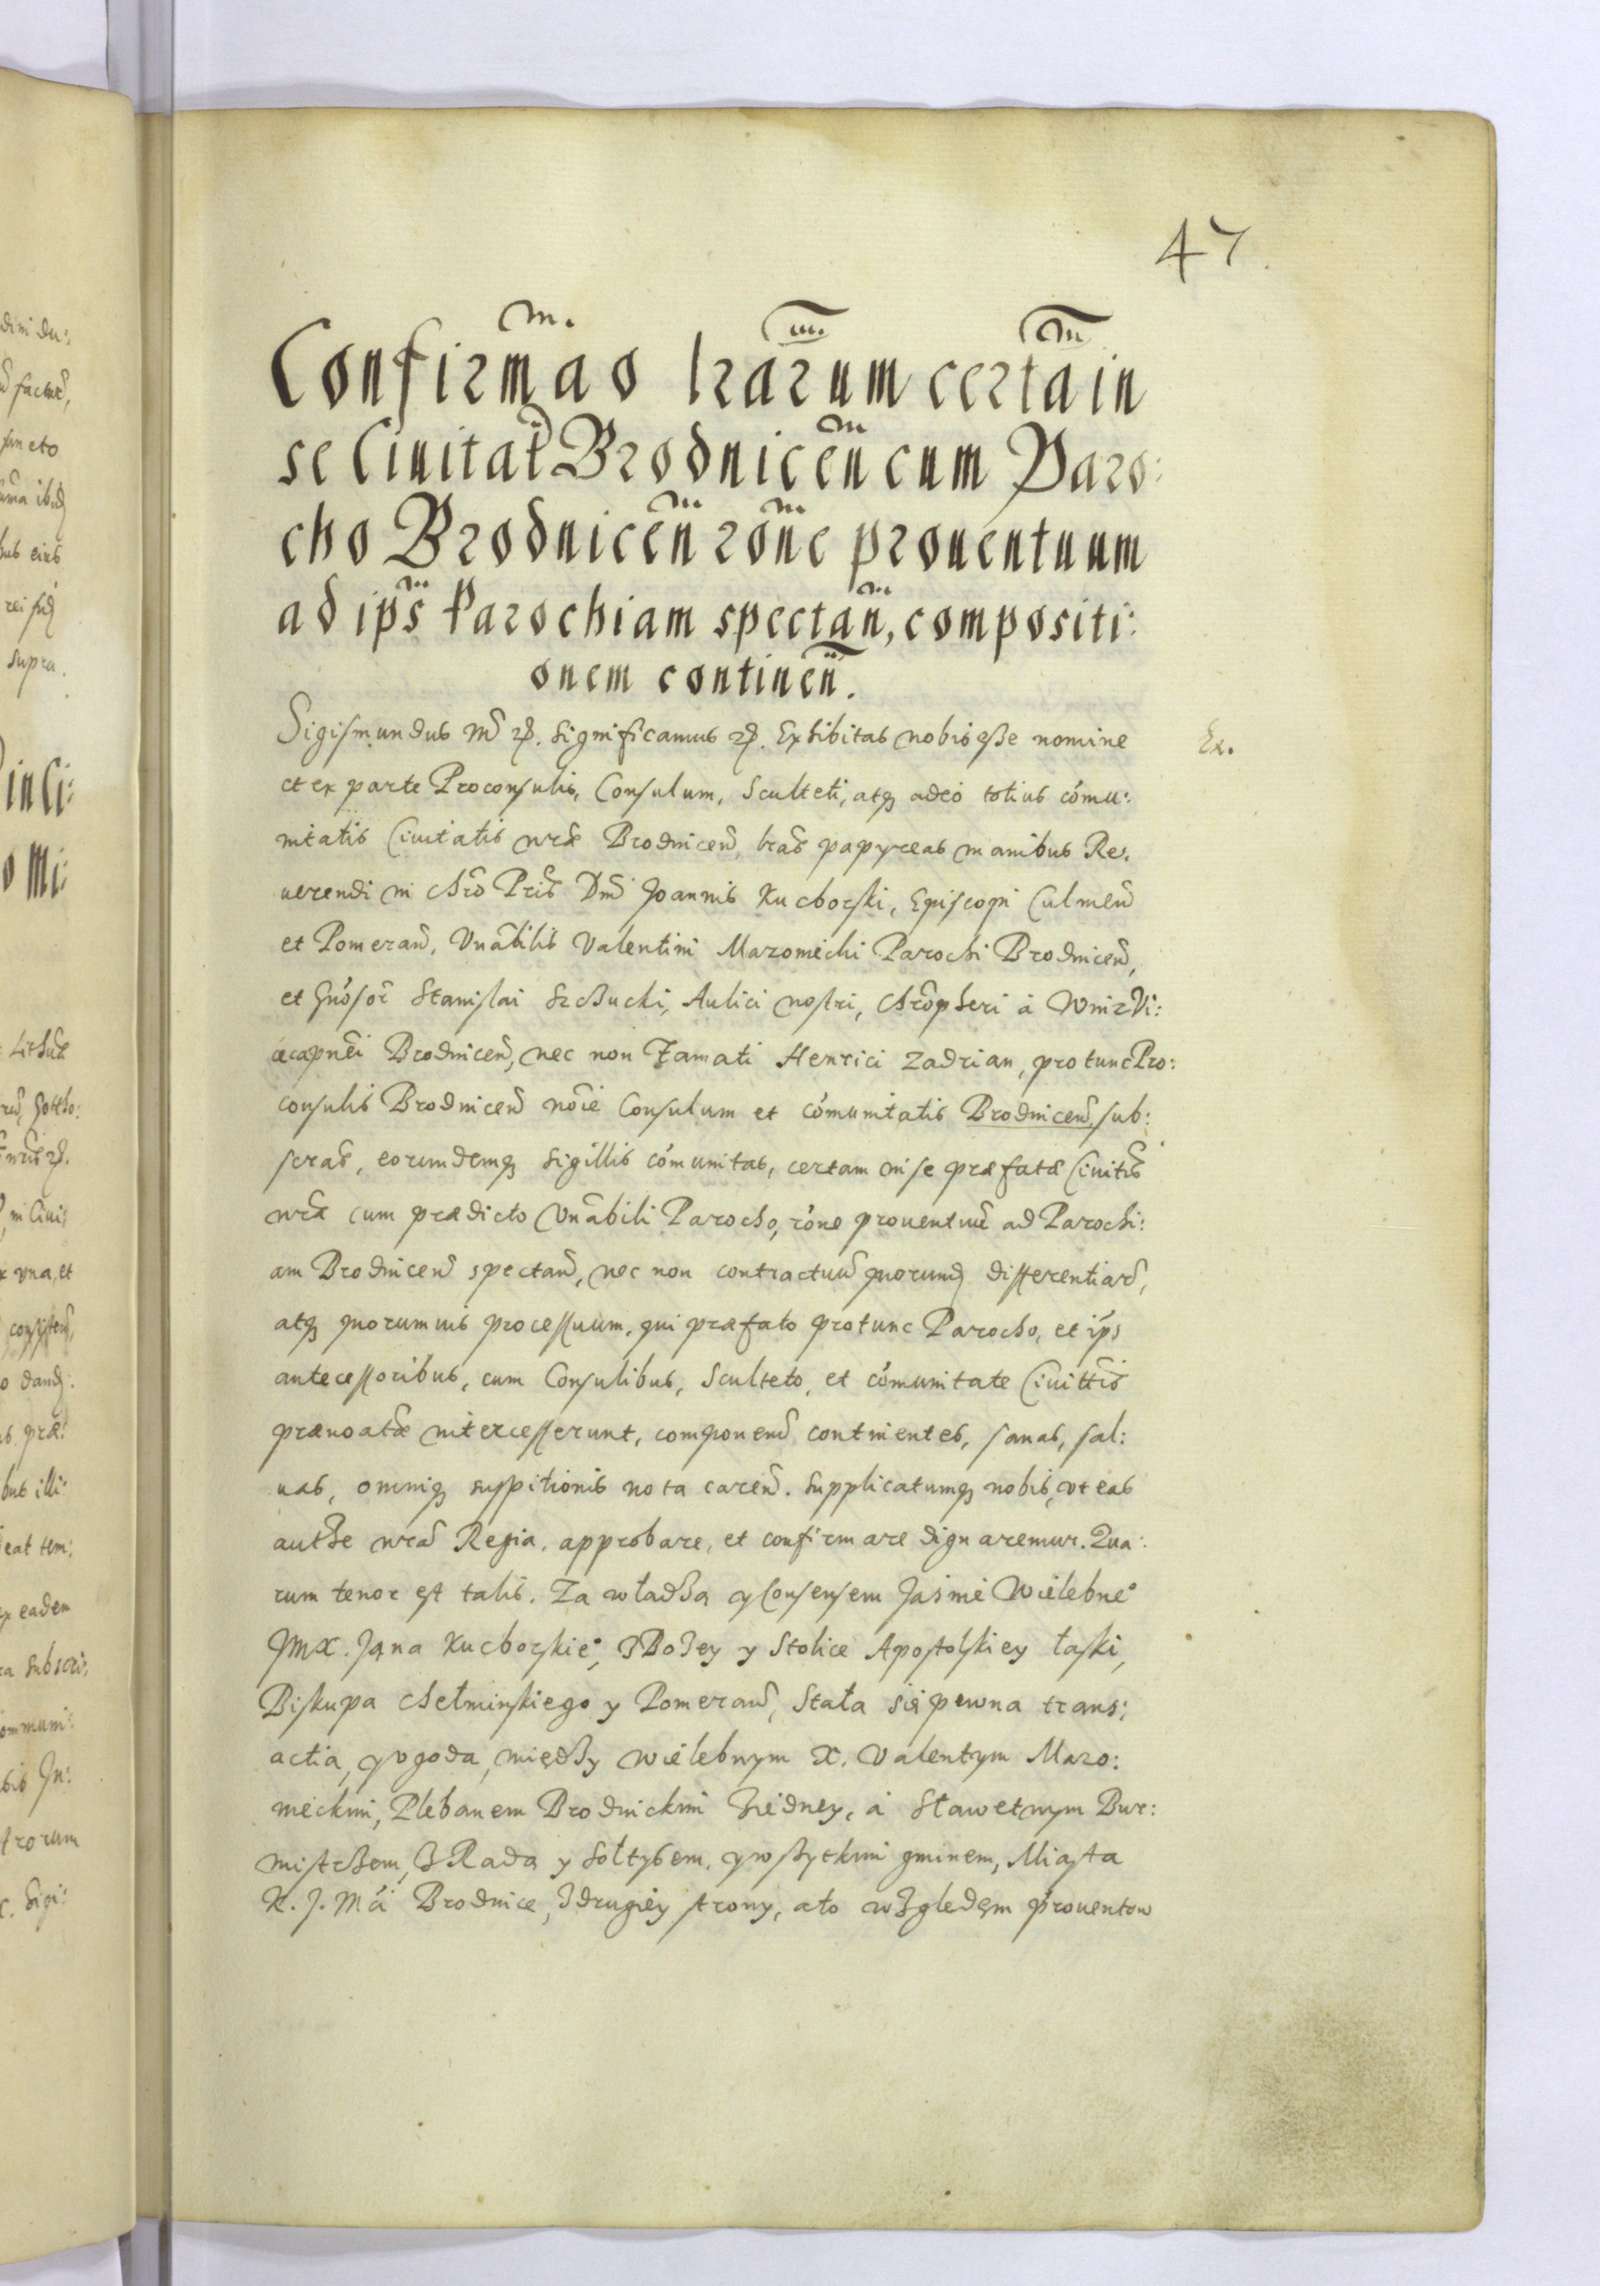 47
Confirmao lrarum certa in
se Ciuitat Brodnicen cum Paro:
cho Brodnicen rone prouentuum
ad ips Parochiam spectan, compositi:
onem continen.
Sigismundus Significamus Exhibitas nobis esse nomine
Ex.
et ex parte Proconsulis, Consulum, Sculteti, atq adeo totius comu:
nitatis Ciuitatis nræ Brodnicen, lras papyreas manibus Re:
uerendi in Chro Pris Dni Joannis Kuczborski, Episcopi Culmen
et Pomeran, Vnabilis Valentini Parochi Brodnicen,
et Gnosor Stanislai Aulici nostri,
Brodnicen, nec non Famati Henrici Zadrian, protunc Pro:
consulis Brodnicen noie Consulum et comunitatis Brodnicen, sub:
scras, eorundemq sigillis comunitas, certam in se præfatæ Ciuitis
nræ cum prædicto Vnabili Parocho, rone prouentuu ad Parochi:
am Brodnicen spectan, nec non contractuu quorund differentiaru,
atq quorumuis processuum, qui præfato protunc Parocho, et ips
antecessoribus, cum Consulibus, Sculteto, et comunitate Ciuittis
prænoatæ intercesserunt, componen continentes, sanas, sal:
uas, omniq suspitionis nota caren. Supplicatumq nobis, vt eas
authe nra Regia, approbare, et confirmare dignaremur. Qua:
rum tenor est talis. Za władzą y Consensem Jasnie Wielebne°
JMX. Jana Kuczborskie°, z Bozey y Stolice Apostolskiey łaski,
Biskupa Chełminskiego y Pomeran, Stała się pewna trans:
actia, y vgoda, między wielebnym X. Valentym Mazo:
Plebanem Brodnickim ziedney, á Sławetnym Bur:
mistrzem, z Radą y Sołtysem, y wszytkim gminem, Miasta
K. J. Mci Brodnice, zdrugiey strony, ato względęm prouentow